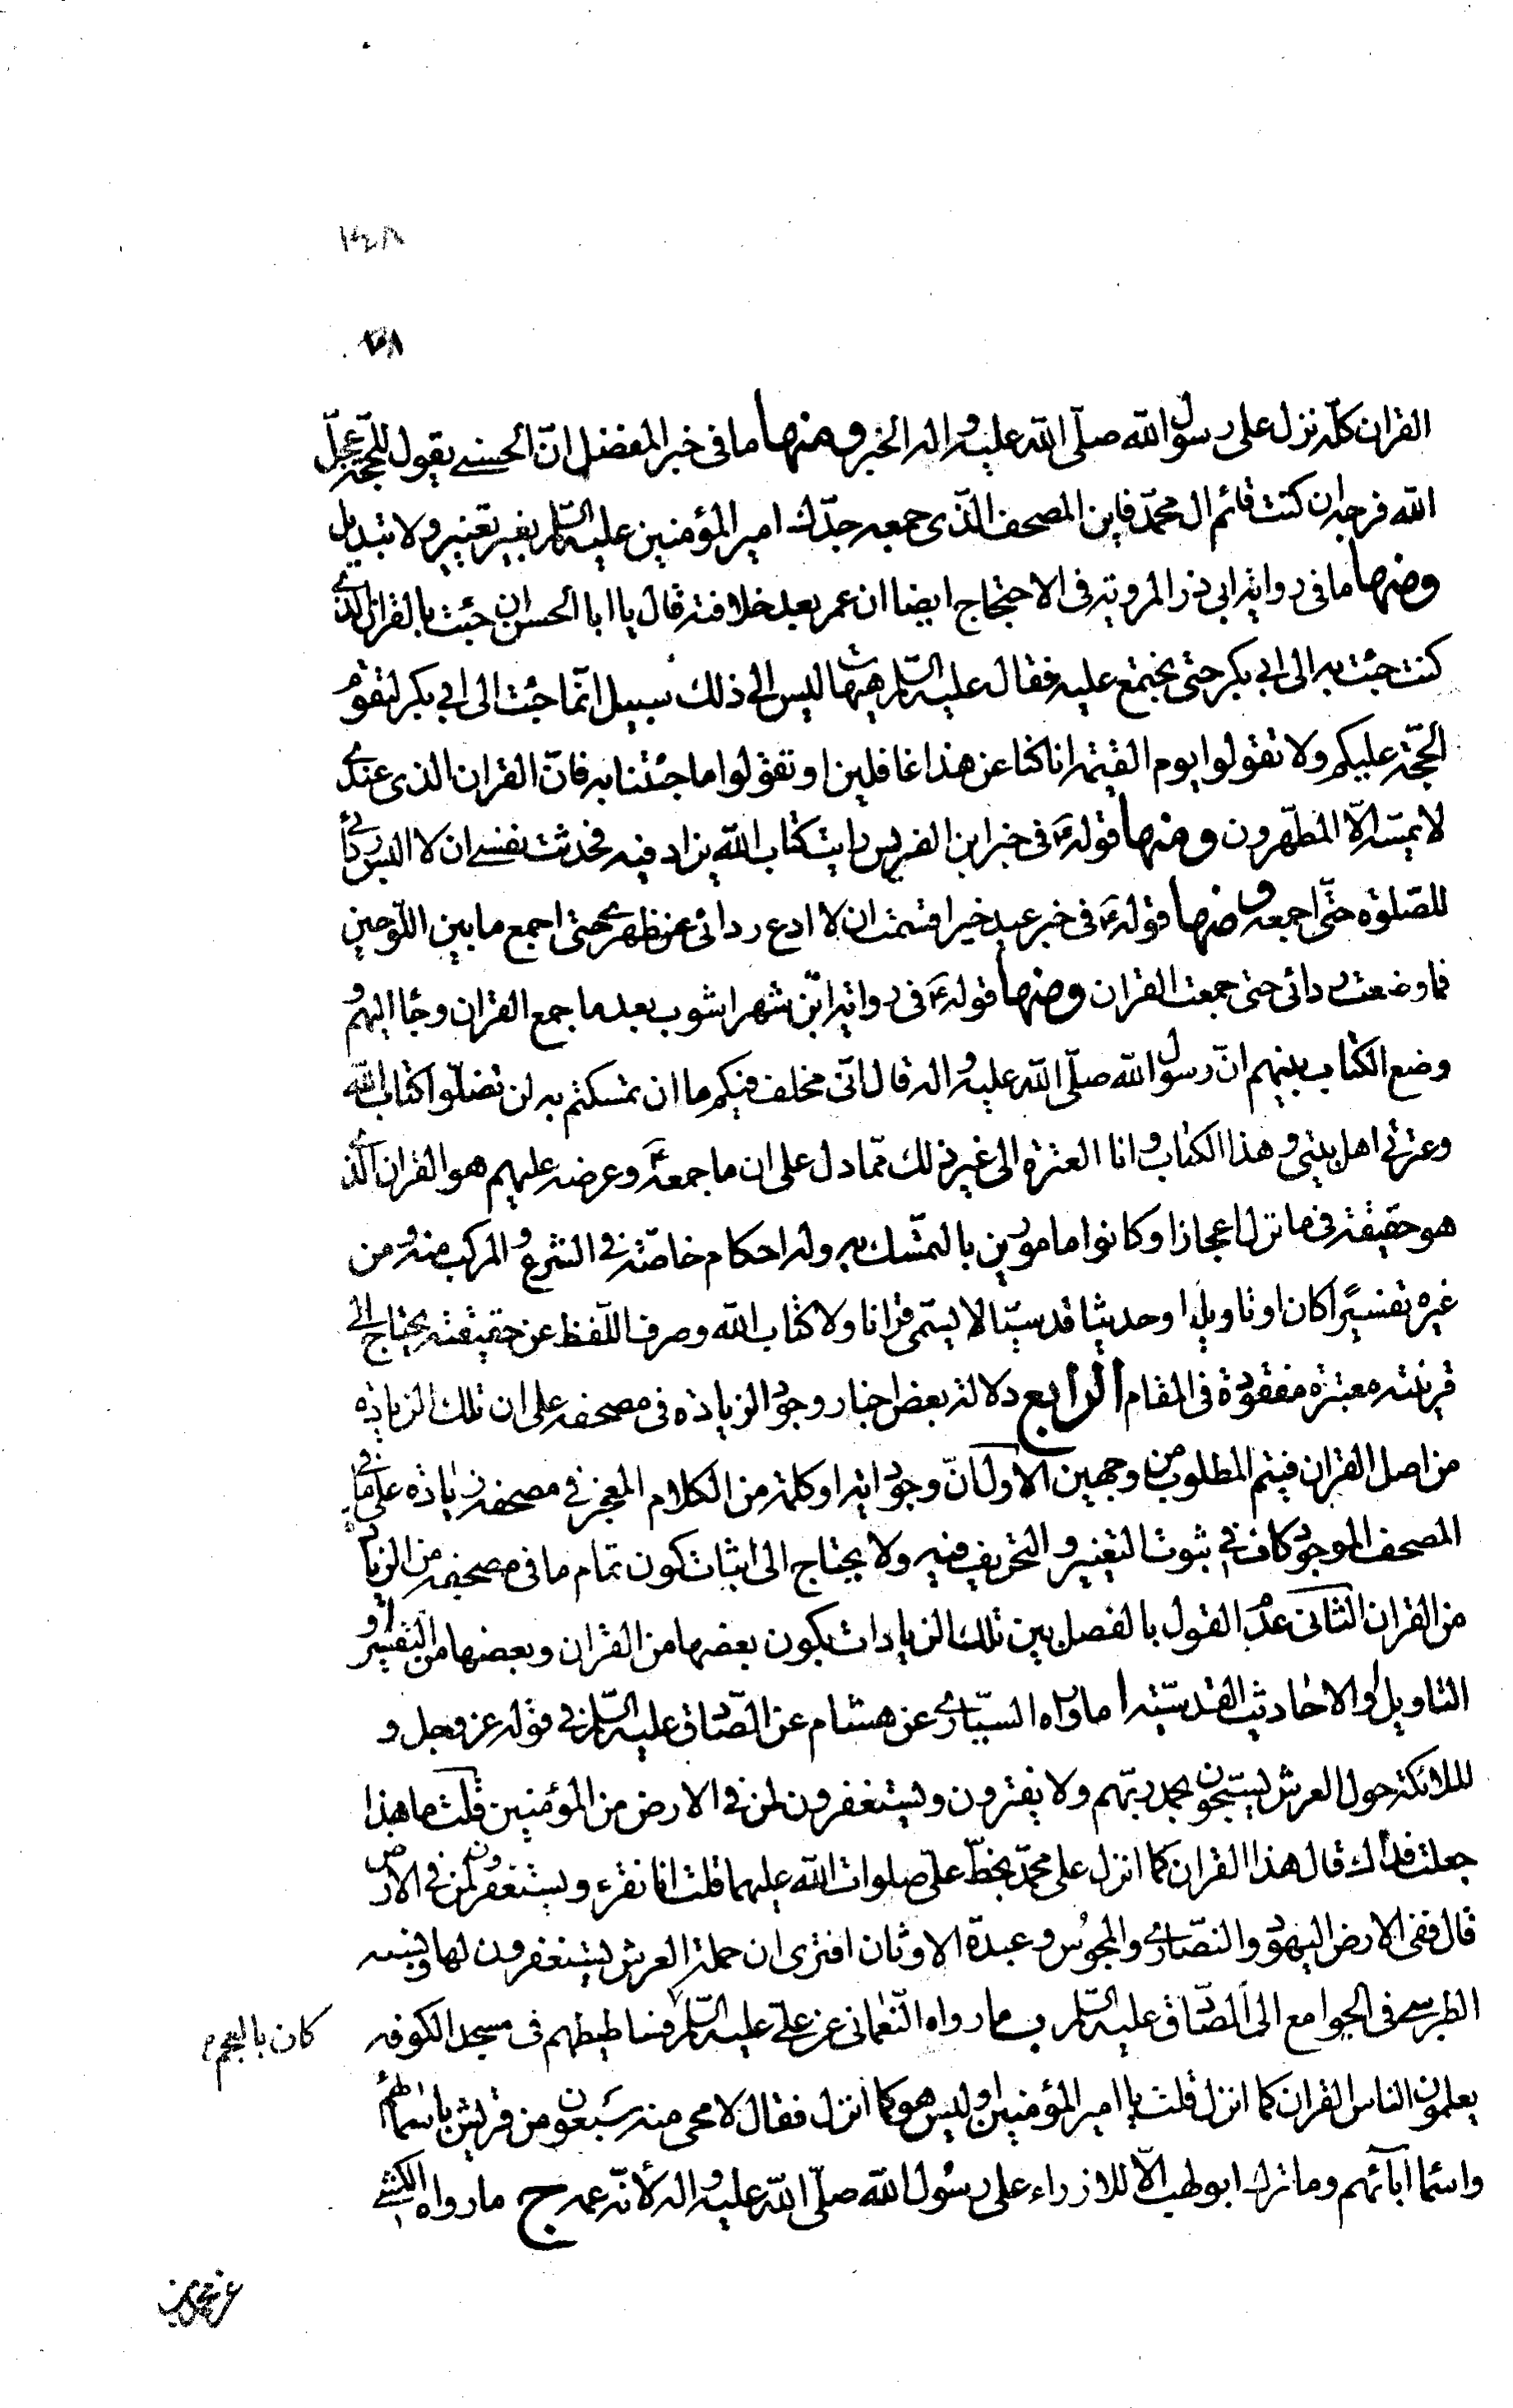 ١٤٨
القران كلّه نزل على رسول الله صلّى الله عليه واله الخبر ومنها ما فى خبر المفضل انّ الحسنى يقول للحجّة عجّل
الله فرجه ان كنت قائم ال محمّد فاين المصحف الّذى جمعه جدّك امير المؤمنين عليه السّلم بغير تغيير ولا تبديل
ومنها ما فى رواية ابى ذر المروية فى الاحتجاج ايضا ان عمر بعد خلافته قال يا ابا الحسن ان جئت بالقران الّذى
كنت جئت به الى ابى بكر حتى نجتمع عليه فقال عليه السّلم هيهات ليس الى ذلك سبيل انّما جئت الى ابى بكر لتقوم
الحجّة عليكم ولا تقولوا يوم القيمة انا كنا عن هذا غافلين او تقولوا ما جئتنا به فانّ القران الذى عندى
لا يمسّه الاّ المطهّرون ومنها قوله ع فى خبر ابن الضريس رايت كتاب الله يزاد فيه فحدثت نفسى ان لا البس ردائى
للصّلوة حتّى اجمعه ومنها قوله ع فى خبر عبد خير اقسمت ان لا ادع ردائى عن ظهرى حتى اجمع ما بين اللّوحين
فما وضعت ردائى حتى جمعت القران ومنها قوله ع فى رواية ابن شهراشوب بعد ما جمع القران وجاء اليهم و
وضع الكتاب بينهم انّ رسول الله صلّى الله عليه واله قال انّى مخلف فيكم ما ان تمسكتم به لن تضلّوا كتاب الله
وعترتى اهل بيتى وهذا الكتاب وانا العترة الى غير ذلك ممّا دل على ان ما جمعه ع وعرضه عليهم هو القران الّذى
هو حقيقة فى ما نزل اعجازا وكانوا مامورين بالتمسّك به وله احكام خاصّة فى الشرع والمركب منه ومن
غيره تفسيرًا كان او تاويلا او حديثا قدسيّا لا يسمّى قرانا ولا كتاب الله وصرف اللّفظ عن حقيقته يحتاج الى
قرينة معتبرة مفقودة فى المقام الرّابع دلالة بعض اخبار وجود الزيادة فى مصحفه على ان تلك الزيادة
من اصل القران فيتم المطلوب من وجهين الاول انّ وجود اية او كلمة من الكلام المعجز فى مصحفه زيادة على ما فى
المصحف الموجود كاف فى ثبوت التغيير والتحريف فيه ولا يحتاج الى اثبات كون تمام ما فى مصحفه من الزيادة
من القران الثانى عدم القول بالفصل بين تلك الزيادات بكون بعضها من القران وبعضها من التفسير او
التاويل او الاحاديث القدسيّة ا ما رواه السيّارى عن هشام عن الصّادق عليه السّلم فى قوله عز وجل و
الملائكة حول العرش يسبّحون بحمد ربّهم ولا يفترون ويستغفرون لمن فى الارض من المؤمنين قلت ما هذا
جعلت فداك قال هذا القران كما انزل على محمّد بخطّ علىّ صلوات الله عليهما قلت انا نقرء ويستغفرون لمن فى الارض
قال ففى الارض اليهود والنّصارى والمجوس وعبدة الاوثان افترى ان حملة العرش يستغفرون لها ونسبه
الطبرسى فى الجوامع الى الصّادق عليه السّلم ب ما رواه النّعمانى عن علىّ عليه السّلم فساطيطهم فى مسجد الكوفة
كانى بالعجم
يعلمون الناس القران كما انزل قلت يا امير المؤمنين اوليس هو كما انزل فقال لا محى منه سبعون من قريش باسمائهم
واسماء آبائهم وما ترك ابو لهب الاّ للازراء على رسول الله صلّى الله عليه واله لأنّه عمه ج ما رواه الكشّى